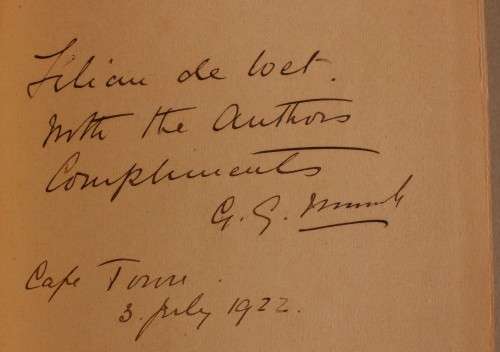 Lilian de Wet.
With the Authors
Compliments
G. G. Munnik
Cape Town.
3. July 1922.